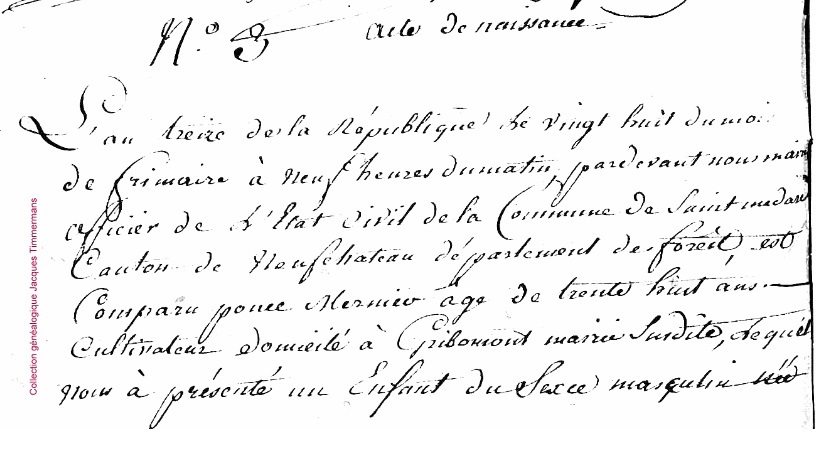 N.o 3 Acte de naissance
L'an treize de la République le vingt huit du mois
de frimaire à neuf heures du matin, pardevant nous maire
officier de L'Etat Civil de la Commune de Saint medard
Canton de Neufchateau département de forêt, est
Comparu ponce Mernier âge de trente huit ans.
Cultivateur domicilé à Gribomont mairie Susdite, Lequel
nous à présenté un Enfant du Sexce masculin néé
Collection généalogique Jacques Timmermans